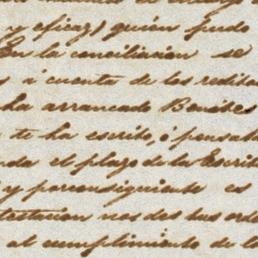 y eficaz) quién pudo
En la conciliacion se
s a' cuenta de los redito
ha arrancado Benites
te ha escrito, ó pensa
da el plazo de la Escrit
y por consiguiente es
testacion nos des tus ord
al cumplimiento de lo